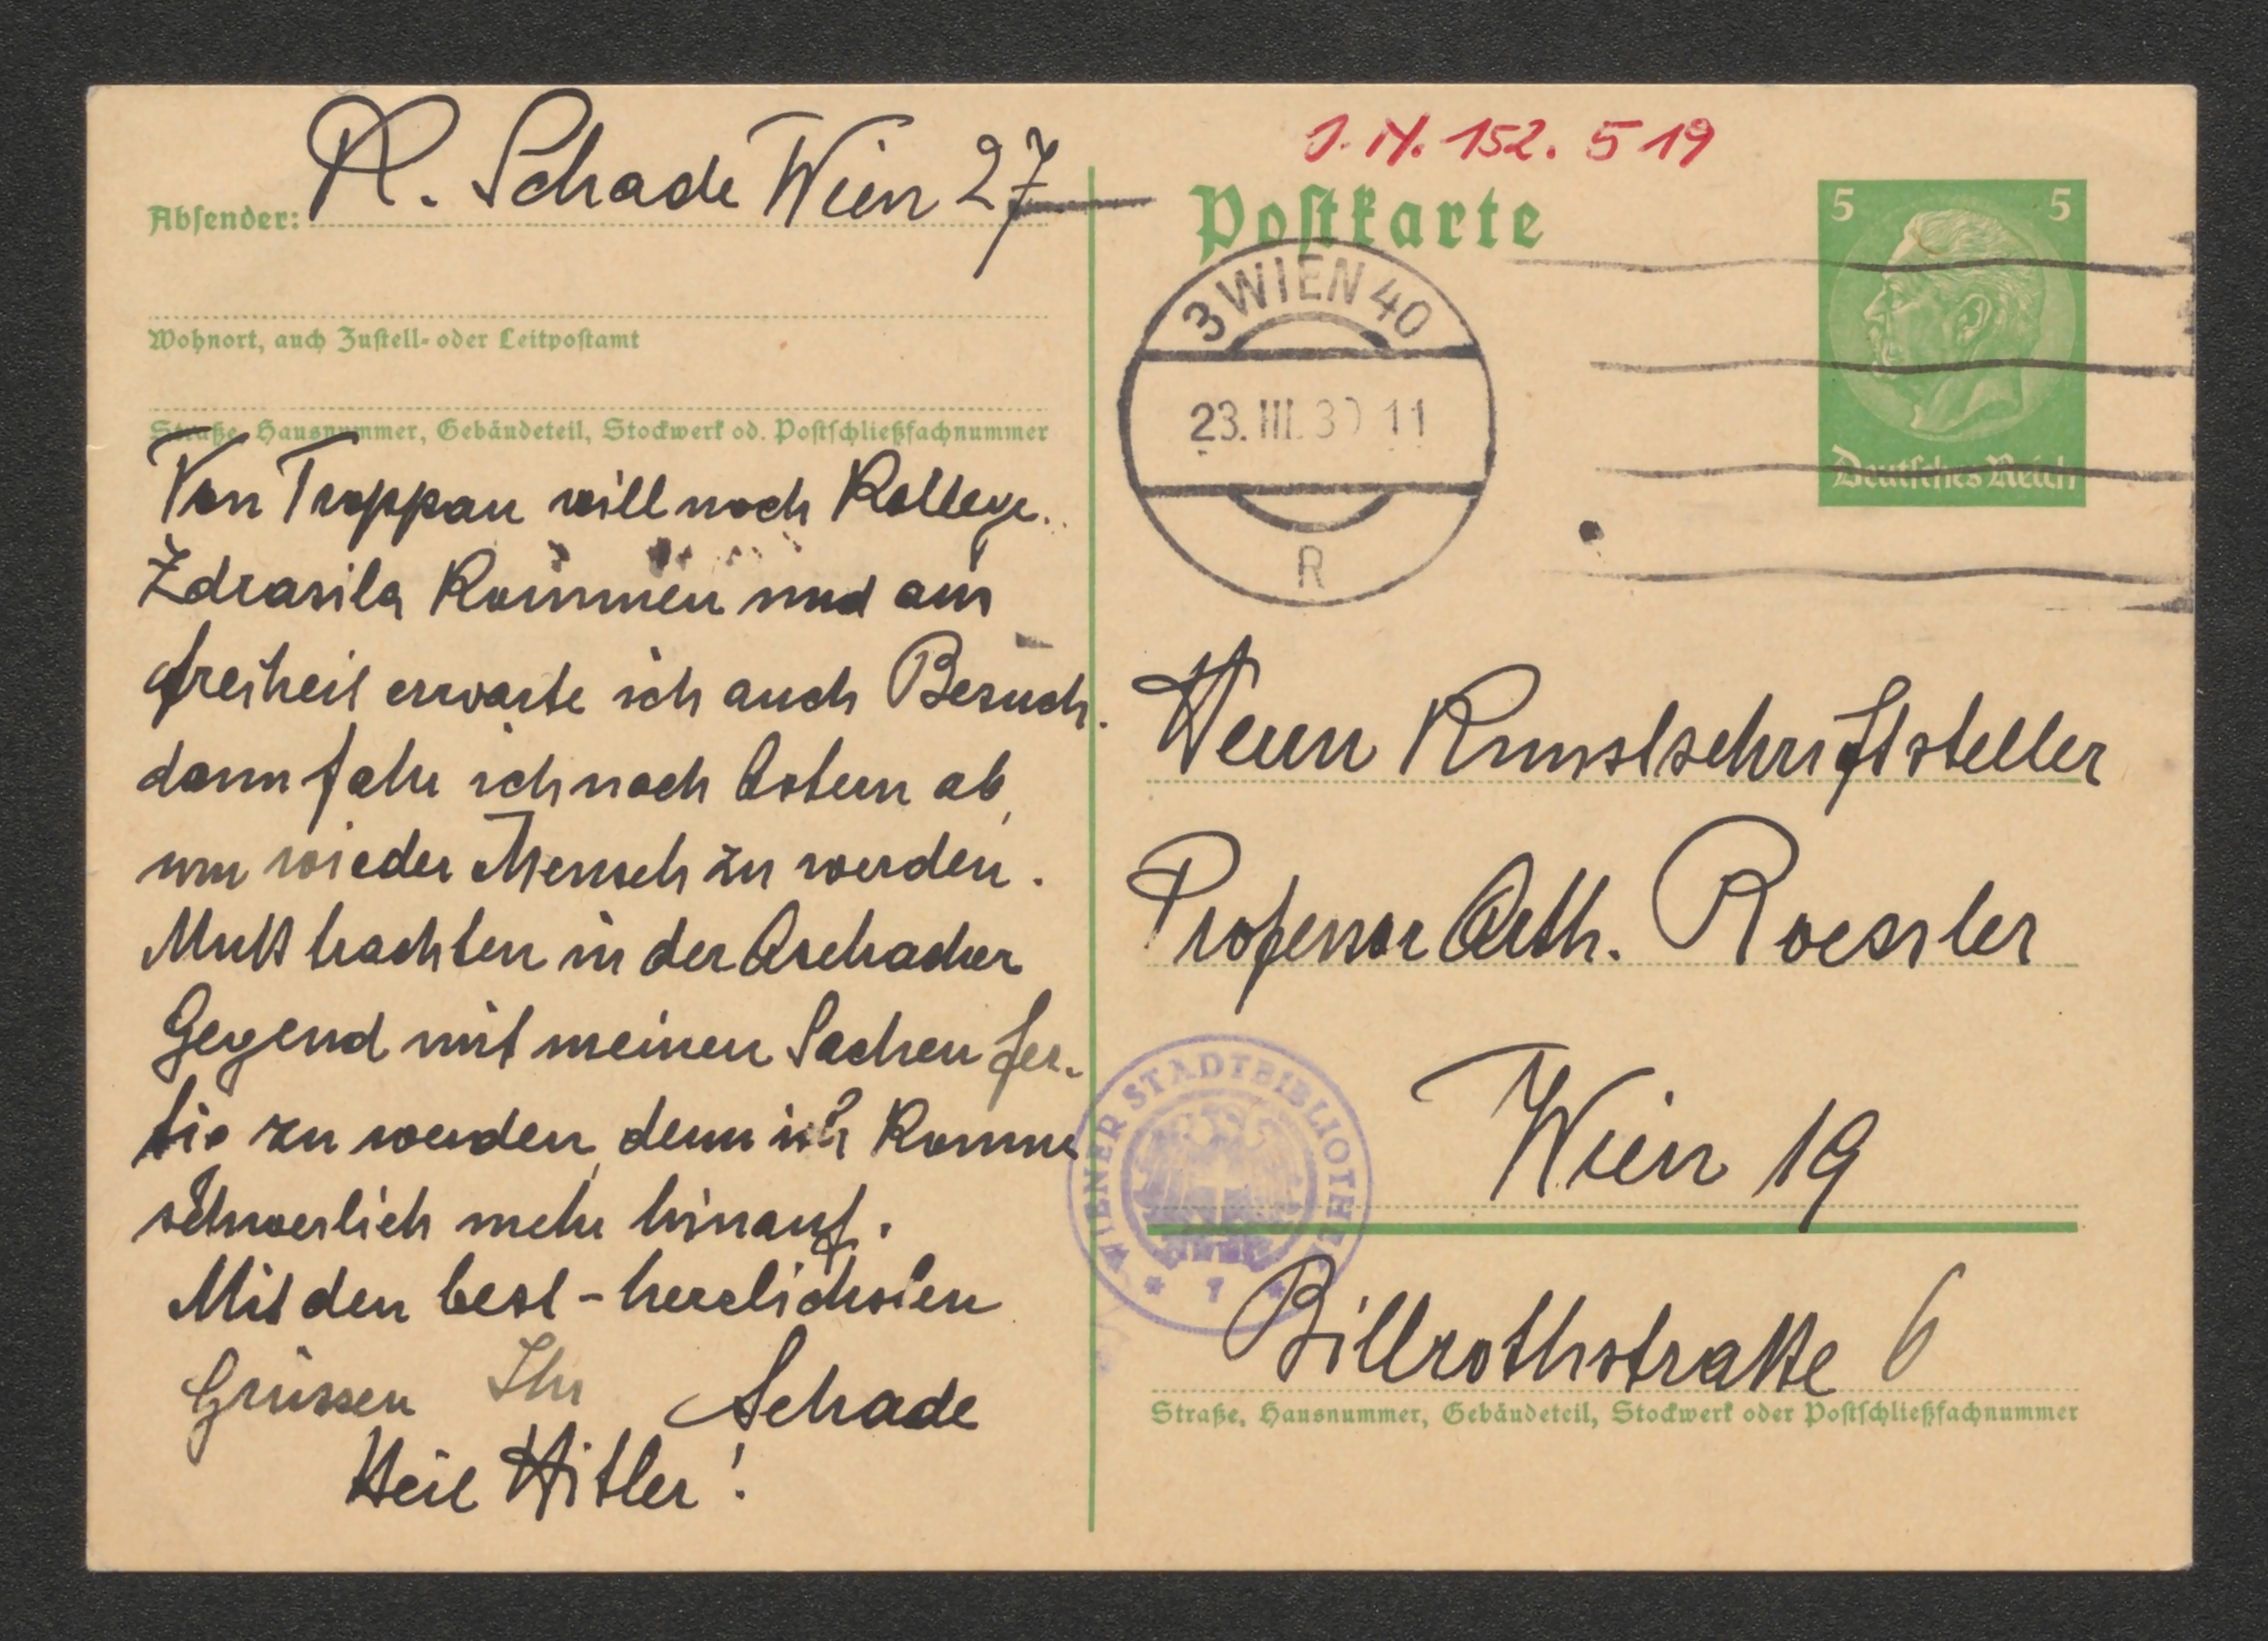 Absender: K. Schade Wien 27
Wohnort, auch Zustell- oder Leitpostamt
Straße, Hausnummer, Gebäudeteil, Stockwerk od. Postschließfachnummer
Von Troppau will noch Kollege
Zdrasila kommen und aus
Freiheit erwarte ich auch Besuch.
dann fahr ich nach Ostern ab,
um wieder Mensch zu werden.
Muß trachten in der Aschacher
Gegend mit meinen Sachen fer-
tig zu werden, denn ich komme
schwerlich mehr hinauf.
Mit den best-herzlichsten
Grüssen Ihr Schade
Heil Hitler!
J.N. 152.519
Postkarte
5 5
Deutsches Reich
3 WIEN 40
23.III.39 11
R
Herrn Kunstschriftsteller
Professor Arth. Roessler
Wien 19
Billrothstraße 6
Straße, Hausnummer, Gebäudeteil, Stockwerk oder Postschließfachnummer
WIENER STADTBIBLIOTHEK
* 1 *